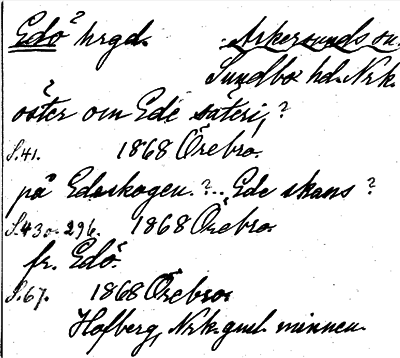 Edö? hrgd. Askersunds sn.
Sundbo hd. Nrk.
öster om Edö säteri, ?
S. 41. 1868 Örebro.
på Edöskogen. ?.. Edö skans ?
S. 43 o. 296. 1868 Örebro.
fr. Edö.
S. 67. 1868 Örebro.
Hofberg, Nrk. gml. minnen.